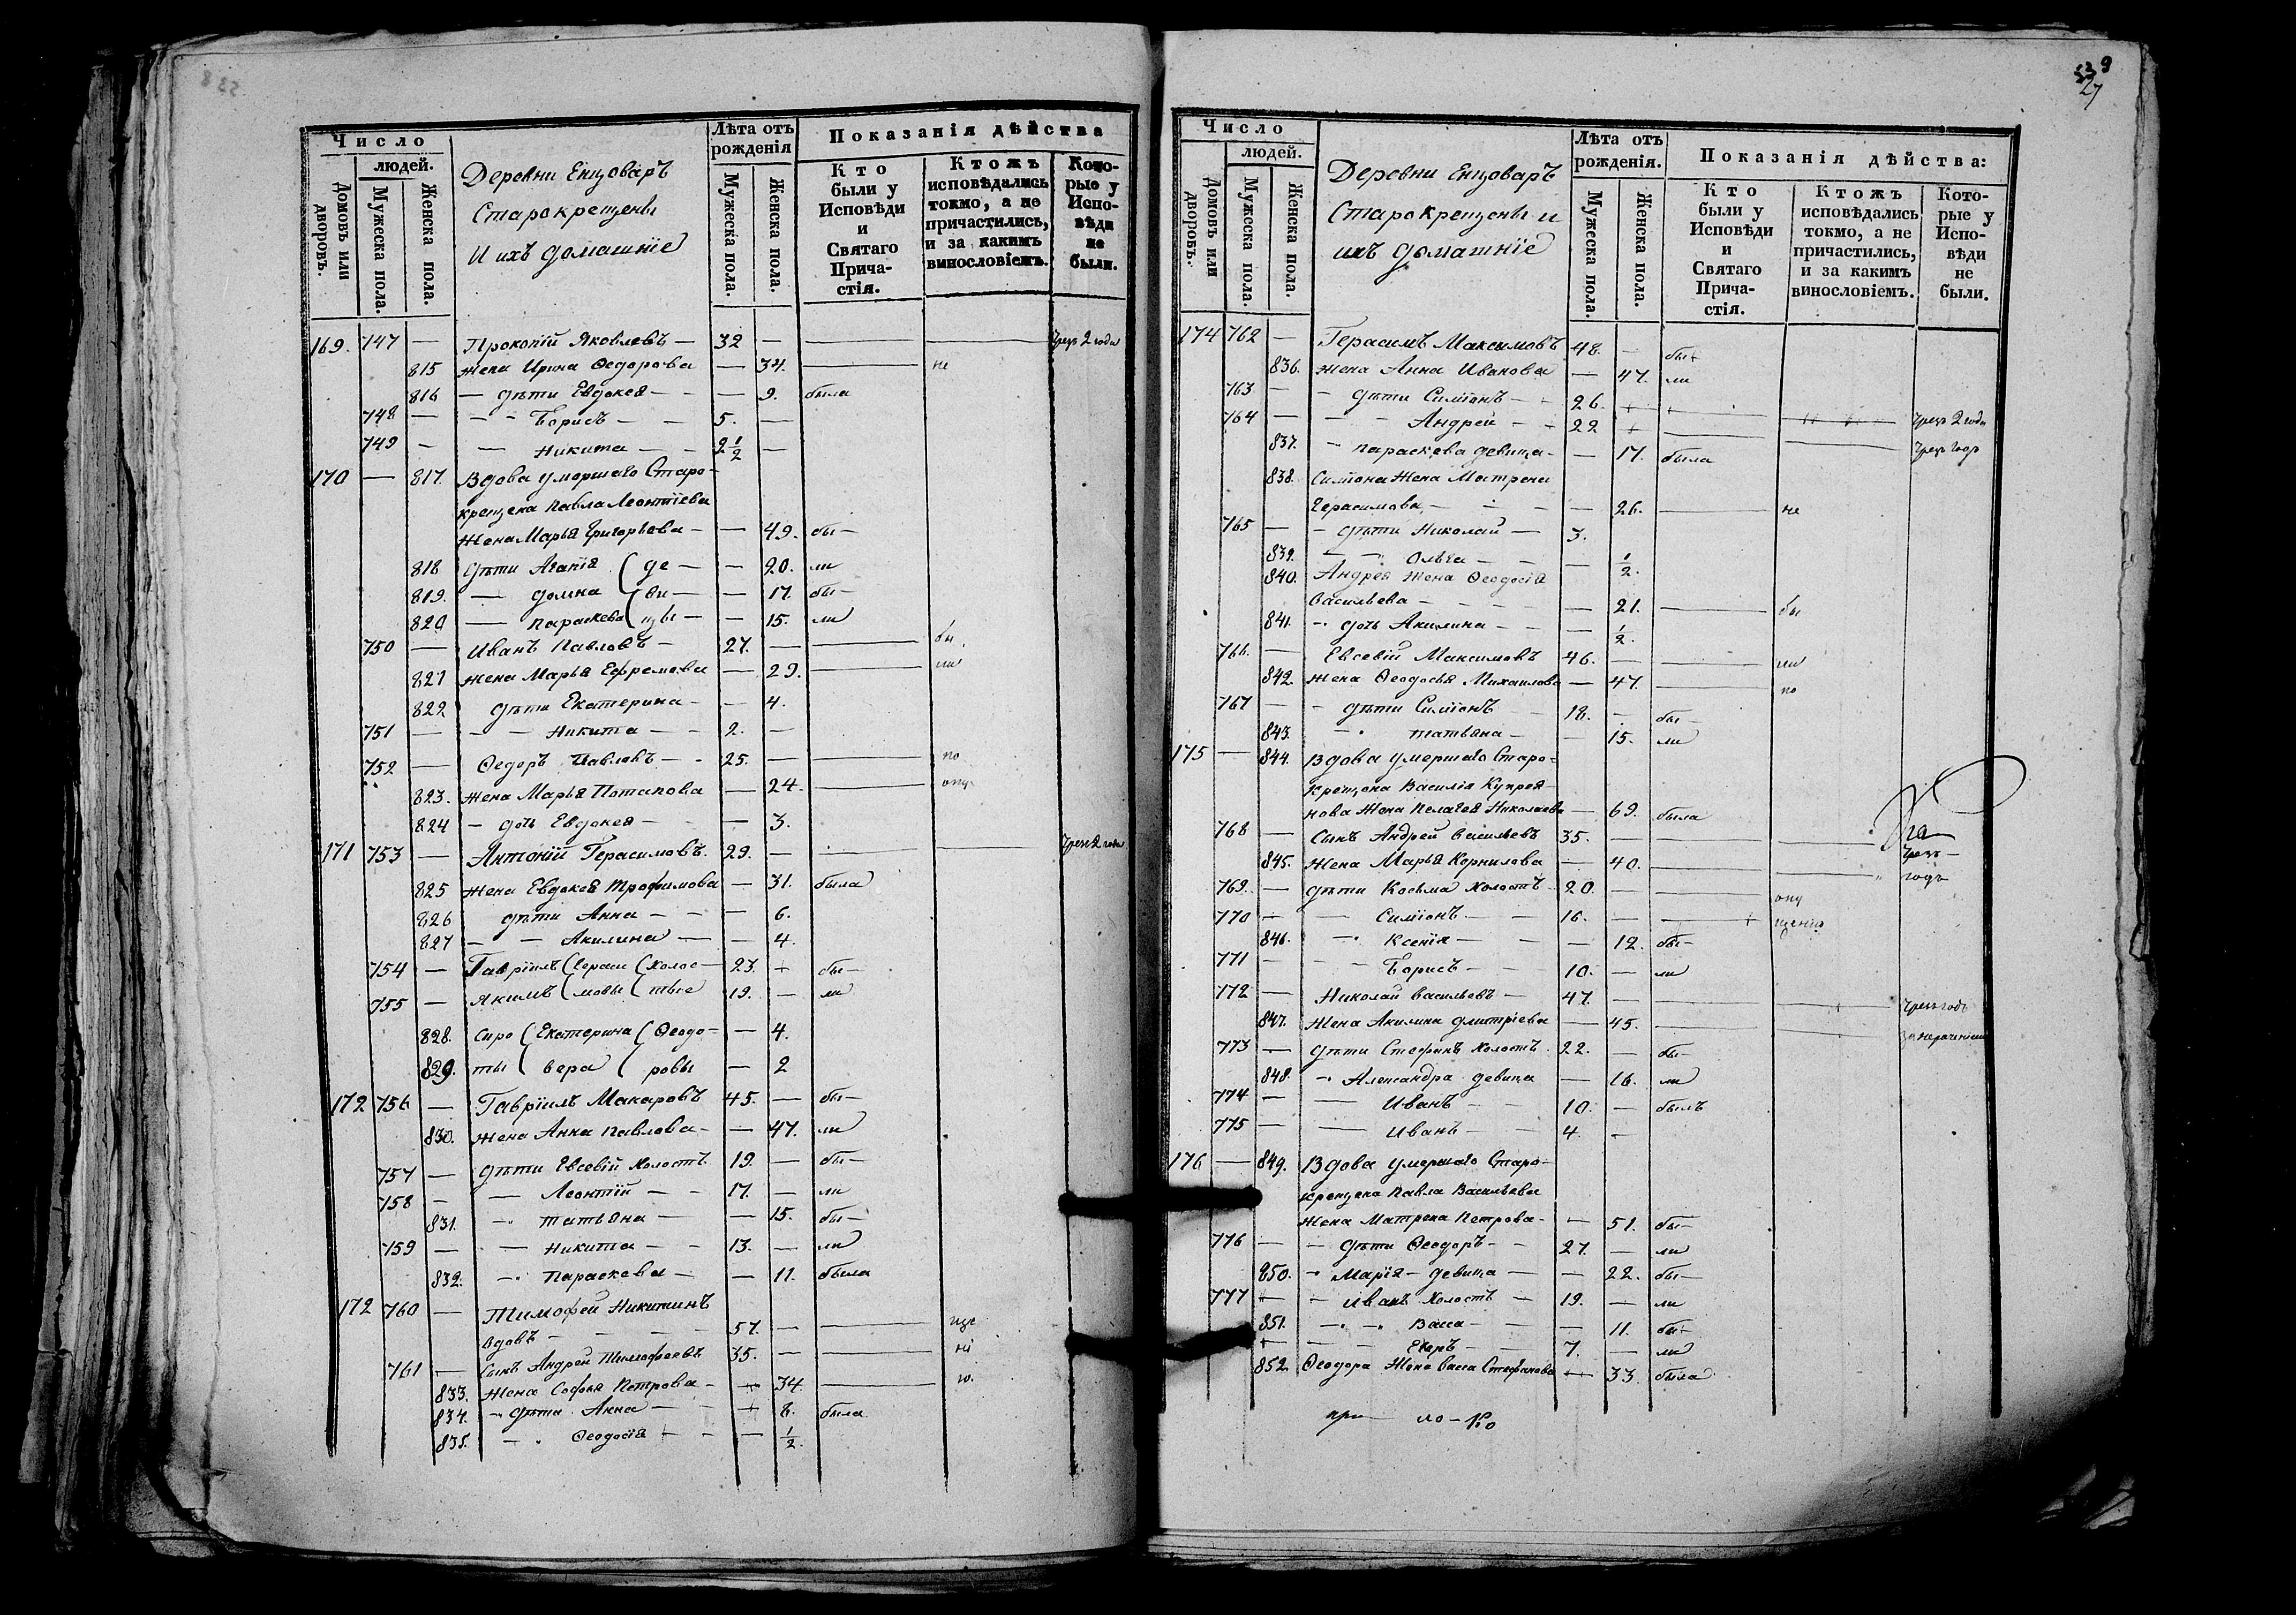 Число
людей.
Домовъ или дворовъ.
Мужеска пола.
Женска пола.
Деревни Енцоваръ
Старокрещены
И ихъ домашніе
Лѣта отъ рожденія
Мужеска пола.
Женска пола.
Показанія дѣйства
Кто были у Исповѣди и Святаго Прича-стія.
Ктожъ исповѣдались токмо, а не причастились, и за какимъ винословіемъ.
Кото-рые у Испо-вѣди не были.
169. 747 — Прокопій Яковлевъ — 32 — — — Чрезъ 2 года
815 жена Ирина Ѳедорова — 34. — не
816 — дѣти Евдокея — — — 9. была
748 — — — Борисъ — — 5. —
749 — — Никита — — 2 1/2 —
170 — 817. Вдова умершаго Старо-
крещена Павла Леонтіева
Жена Марья Григорьева — — 49. бы—
818 дѣти Агапія (де — — 20. ли
819. — Домна (ви — — 17. бы—
820 — Параскева (цы — — 15. ли
750 — Иванъ Павловъ — 27. — — бы
821 жена Марья Ефремова — 29. — ли
822 дѣти Екатерина — — 4.
751 — — — Никита — — 2. —
752 — Ѳедоръ Павловъ — - 25. — — по
823. жена Марья Потапова — 24. — опу
824 — дочь Евдокея — — 3.
171 753 — Антоній Герасимовъ. 29. — — — Чрезъ 2 года
825 жена Евдокея Трофимова — 31. была
826 дѣти Анна — — — 6.
827 — — Акилина — — 4.
754 — Гавріилъ (Гераси (холос— 23. + бы—
755 — Якимъ (мовы (тые 19. — ли
828. Сиро (Екатерина (Ѳеодо— — 4.
829. ты (Вера (ровы — 2
172 756 — Гавріилъ Макаровъ 45. — бы—
830. жена Анна Павлова — — 47. ли
757 — дѣти Евсевій холостъ 19. — бы—
758 — — Леонтій — - 17. — ли
831. — Татьяна — — 15. бы—
759 — — Никита — - 13. — ли
832. — Параскева — — 11. была
172 760 — Тимофей Никитинъ
вдовъ — — — 57. — —
761 — Сынъ Андрей Тимофеевъ 35. — —
833. Жена Софья Петрова — — 34 —
834. — дѣти Анна — - + 8. была
835. — Ѳеодосія — - — 1/2.
27
Число
людей.
Домовъ или дворовъ.
Мужеска пола.
Женска пола.
Деревни Енцоваръ
Старокрещены и
ихъ домашніе
Лѣта отъ рожденія.
Мужеска пола.
Женска пола.
Показанія дѣйства:
Кто были у Исповѣди и Святаго Прича-стія.
Ктожъ исповѣдались токмо, а не причастились, и за какимъ винословіемъ.
Кото-рые у Испо-вѣди не были.
174 762 — Герасимъ Максимовъ 48. — бы+
836. жена Анна Иванова — 47. ли
763 — — дѣти Симіонъ — 26. + + — — Чрезъ 2 года
764 — — Андрей — - 22 + — — Чрезъ годъ
837. — Параскева девица — — 17. была
838. Симіона Жена Матрена
Герасимова — — — 26. — не
765 — — дѣти Николай — 3.
839. — Ольга — — — 1/2.
840. Андрея жена Ѳеодосія
Васильева — — — 21. — бы
841. — дочь Акилина — — — 1/2.
766. — Евсевій Максимовъ 46. — — ли
842. жена Ѳеодосья Михаилова — 47. — по
767 — — дѣти Симіонъ — 18. — бы—
843. — Татьяна — — 15. ли
175 — 844. Вдова умершаго Старо-
крещена Василія Купрея-
нова Жена Пелагея Николаева — 69. была
768 — Сынъ Андрей Васильевъ 35. — — —
845. жена Марья Корнилова — 40. — — Чрезъ—
769. — дѣти Косьма холостъ 20. — — опу годъ
770 — — Симіонъ — — 16. — — щенію
846. — Ксенія — — — 12. бы—
771 — — Борисъ — — 10. — ли
772 — Николай Васильевъ — 47. — — — Чрезъ годъ
847. Жена Акилина Дмитріева — 45. — — за нераченіемъ
773 — дѣти Стефанъ холостъ. 22. — бы—
848. — Александра девица — 16. ли
774 — — Иванъ — — 10. — былъ
775 — — Иванъ — 4. —
176 — 849. Вдова умершаго Старо-
крещена Павла Васильева
жена Матрена Петрова — — 51. бы—
776 — — дѣти Ѳеодоръ — - 27. — ли
850. — Марія — девица — — 22. бы—
777 — — Иванъ холостъ — 19. — ли
851. — — Васса — — — 11. бы—
+ — — Егоръ — 7. — ли
852. Ѳеодора Жена Васса Стефанова — 33. была